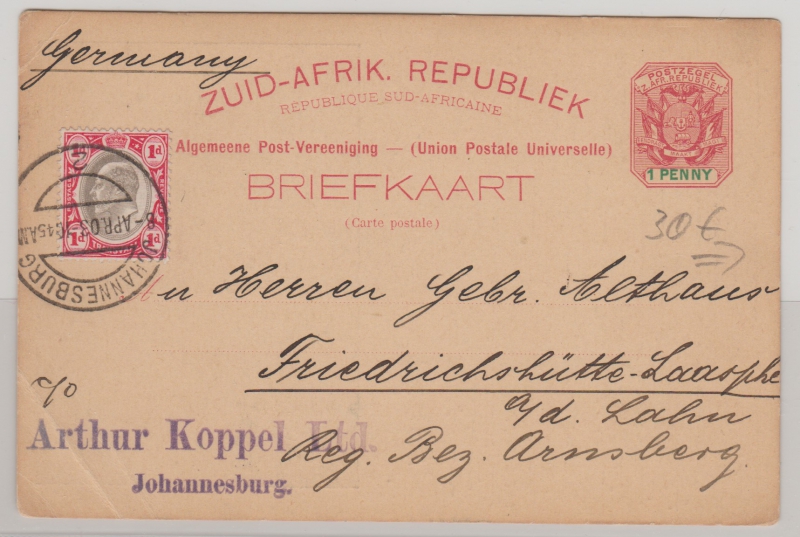 Germany
ZUID-AFRIK. REPUBLIEK
RÉPUBLIQUE SUD-AFRICAINE
POSTZEGEL
Z. AFR. REPUBLIEK
1 PENNY
Algemeene Post-Vereeniging — (Union Postale Universelle)
BRIEFKAART
(Carte postale)
1d 1d
1d 1d
2
8-APR.03-6.45AM
JOHANNESBURG
30 €
An Herren Gebr. Althaus
Friedrichshütte-Laasphe
a/d. Lahn
Reg. Bez. Arnsberg.
c/o
Arthur Koppel Ltd.
Johannesburg.